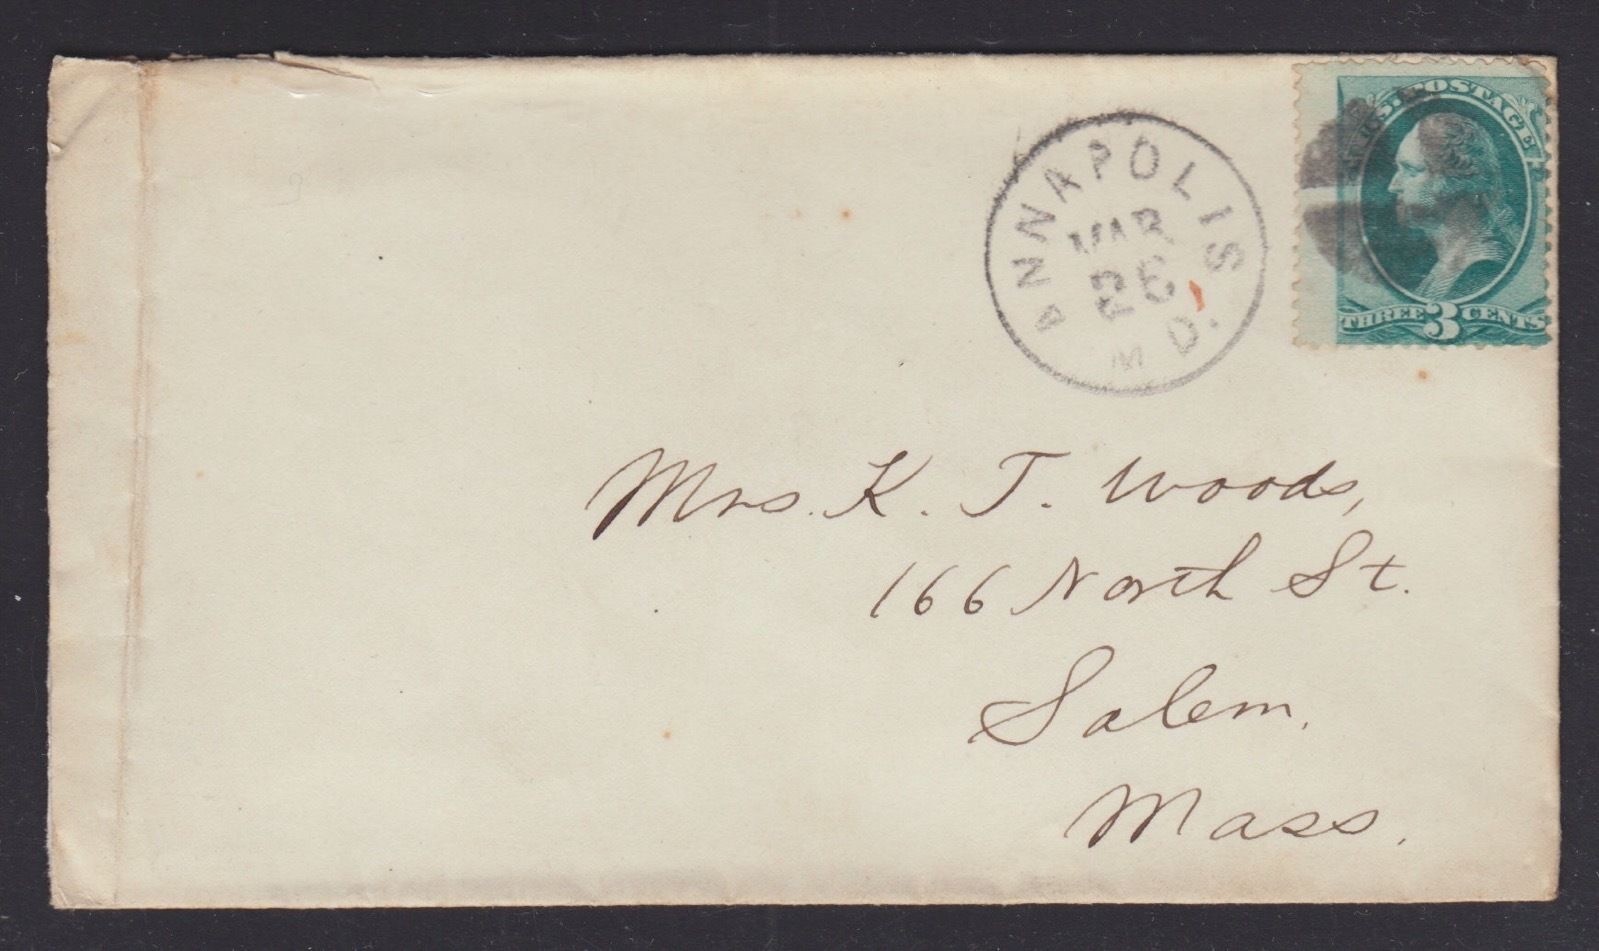 U.S. POSTAGE
THREE 3 CENTS
ANNAPOLIS
MAR
26
MD.
Mrs. K. T. Woods,
166 North St.
Salem,
Mass.